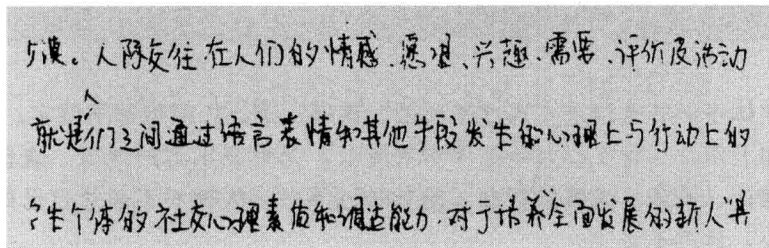 漠。人际交往在人们的情感、愿望、兴趣、需要、评价及活动
就是人们之间通过语言表情和其他手段发生的心理上与行动上的
学生个体的社交心理素质和调适能力，对于培养全面发展的新人"具